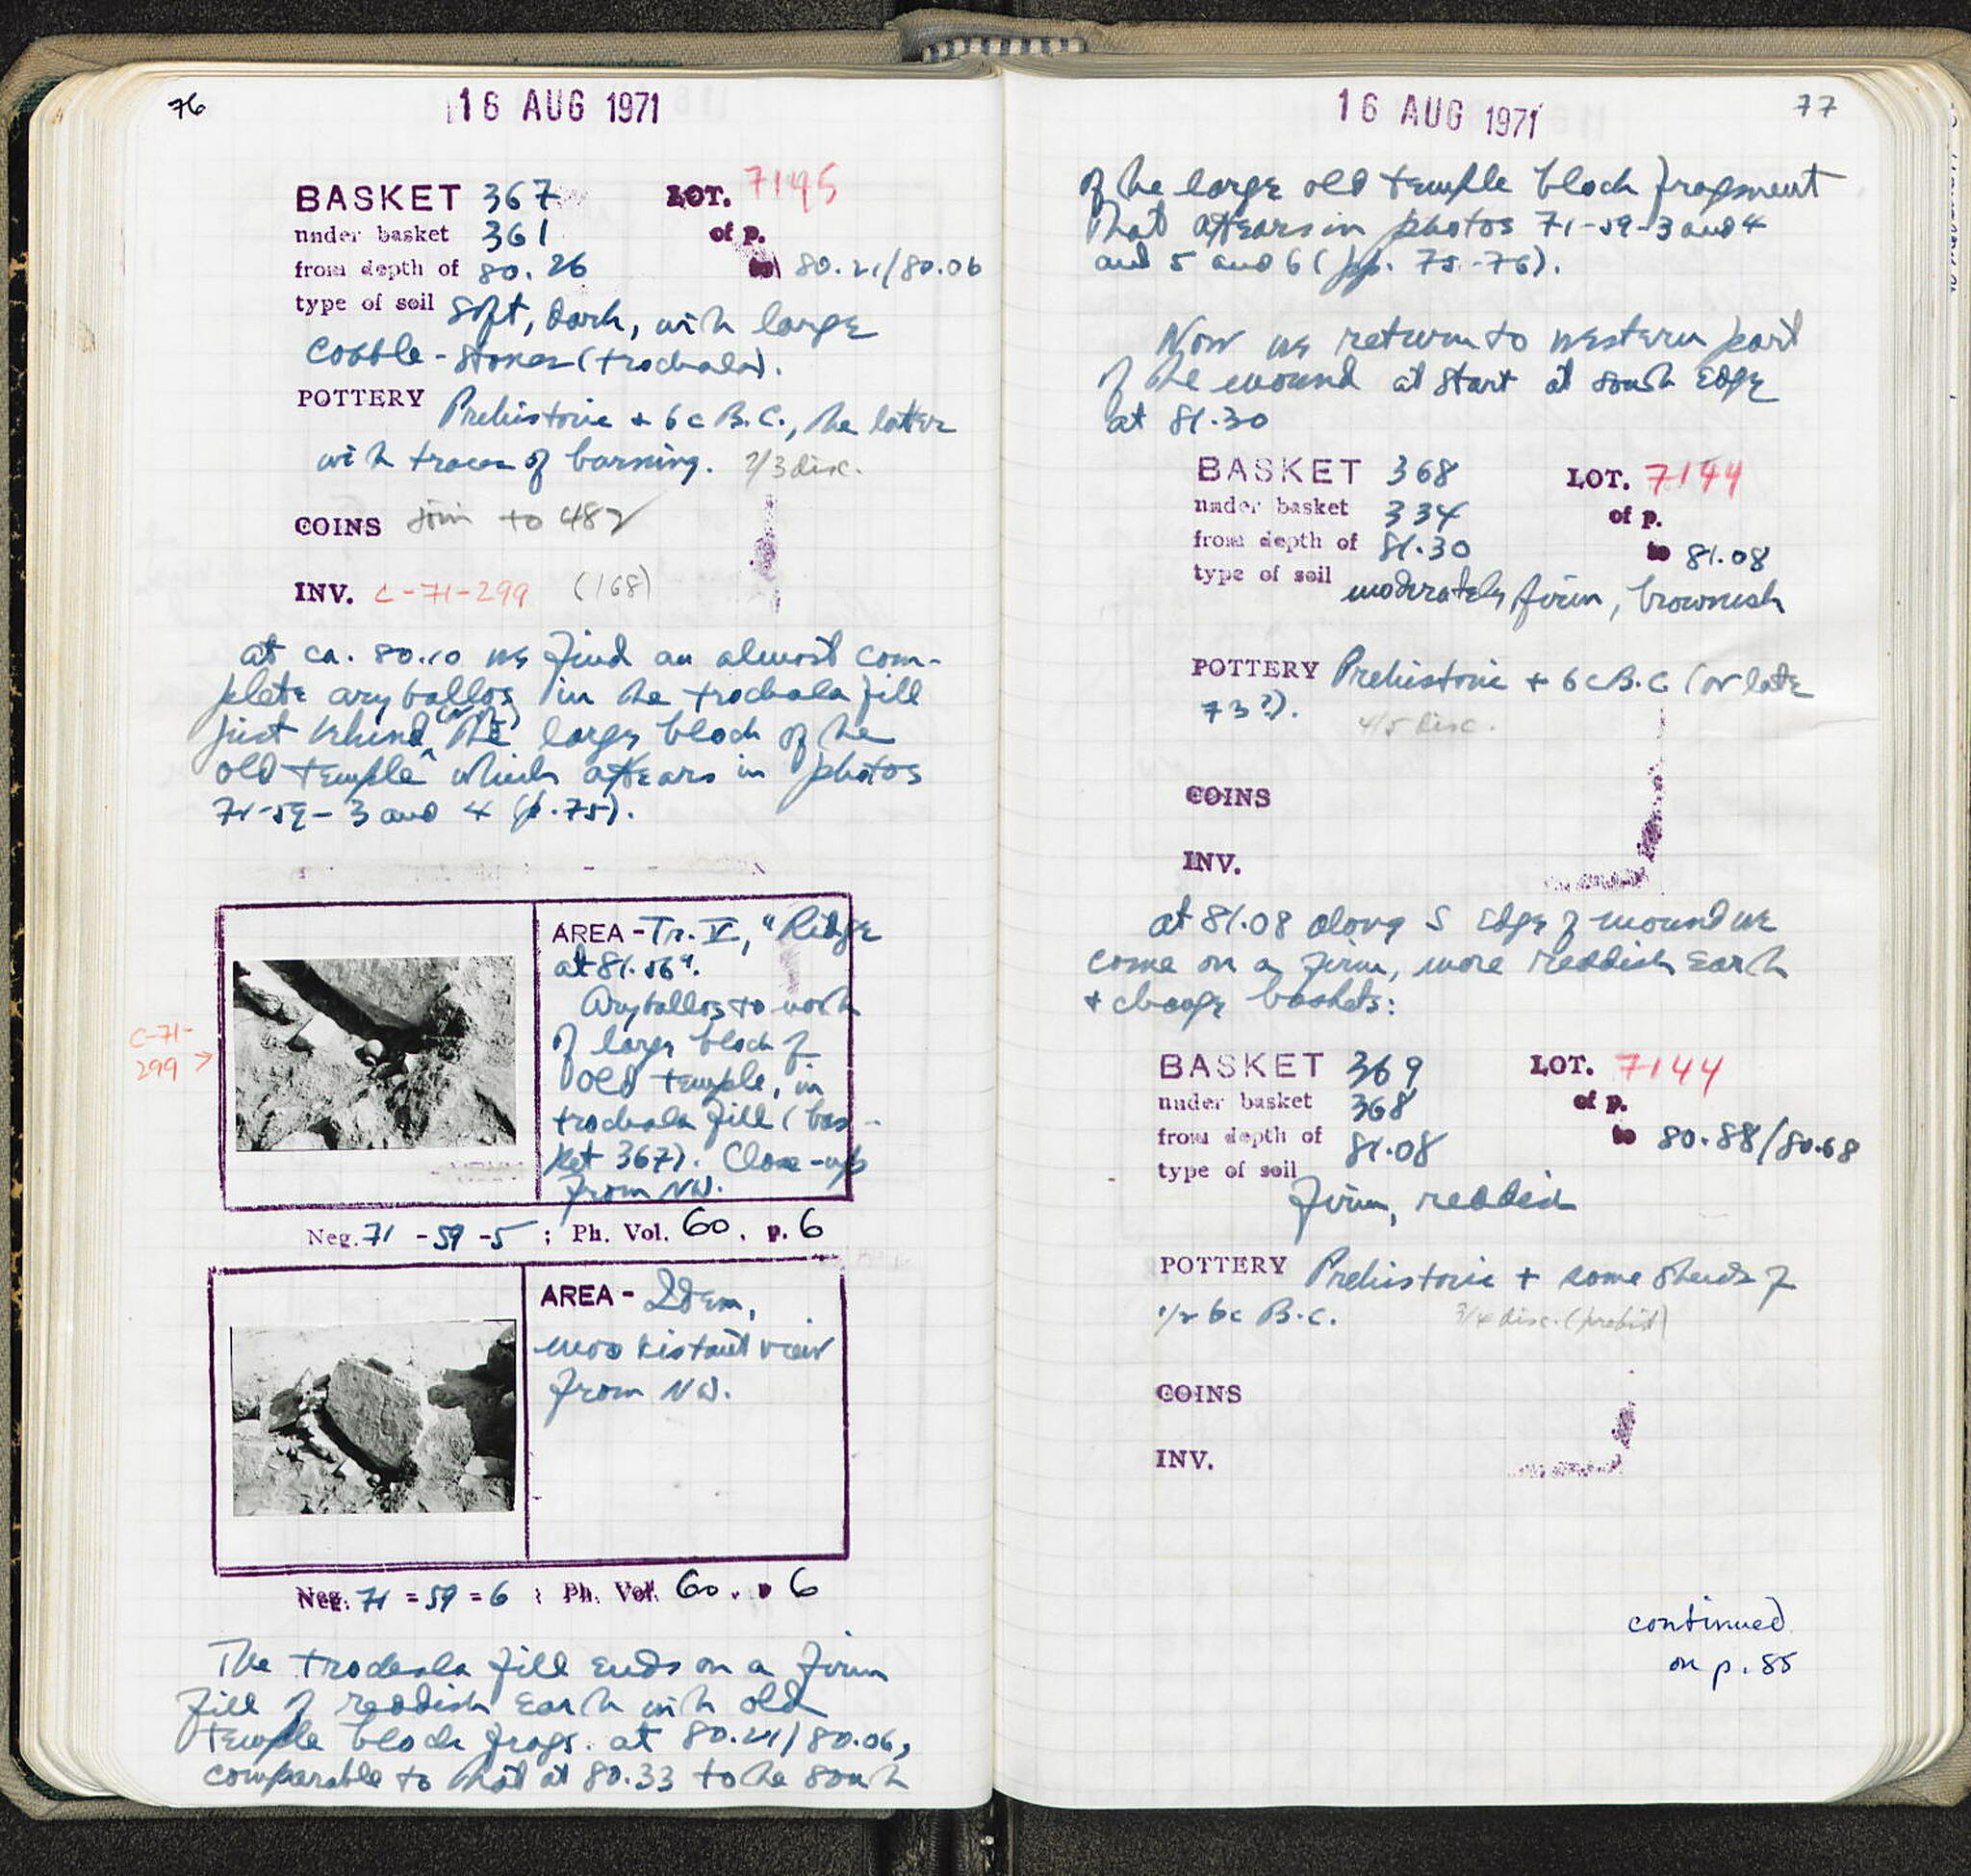 76
16 AUG 1971
BASKET 367 LOT. 7145
under basket 361 of p.
from depth of 80.26 to 80.21/80.06
type of soil Soft, dark, with large
cobble-stones (trochala).
POTTERY Prehistoric + 6c B.C., the latter
with traces of burning. 2/3 disc.
COINS join to 482
INV. C-71-299 (168)
at ca. 80.10 we find an almost com-
plete aryballos in the trochala fill
just behind (north) the large block of the
old temple which appears in photos
71-59-3 and 4 (p. 75).
AREA - Tr. V, "Ridge
at 81.56".
Aryballos to north
of large block of
old temple, in
trochala fill (bas-
ket 367). Close-up
from NW.
C-71-
299 →
Neg. 71-59-5; Ph. Vol. 60, p. 6
AREA - Idem,
more distant view
from NW.
Neg. 71-59-6; Ph. Vol. 60, p 6
The trochala fill ends on a firm
fill of reddish earth with old
temple block frags. at 80.21/80.06,
comparable to that at 80.33 to the south
16 AUG 1971
77
of the large old temple block fragment
that appears in photos 71-59-3 and 4
and 5 and 6 (pp. 75-76).
Now we return to western part
of the mound at start at south edge
at 81.30
BASKET 368 LOT. 7144
under basket 334 of p.
from depth of 81.30 to 81.08
type of soil moderately firm, brownish
POTTERY Prehistoric + 6c B.C. (or late
7 B?). 4/5 disc.
COINS
INV.
at 81.08 along S edge of mound we
come on a firm, more reddish earth
+ change baskets:
BASKET 369 LOT. 7144
under basket 368 of p.
from depth of 81.08 to 80.88/80.68
type of soil firm, reddish
POTTERY Prehistoric + some sherds of
1/2 6c B.C. 3/4 disc. (prehist)
COINS
INV.
continued
on p. 85